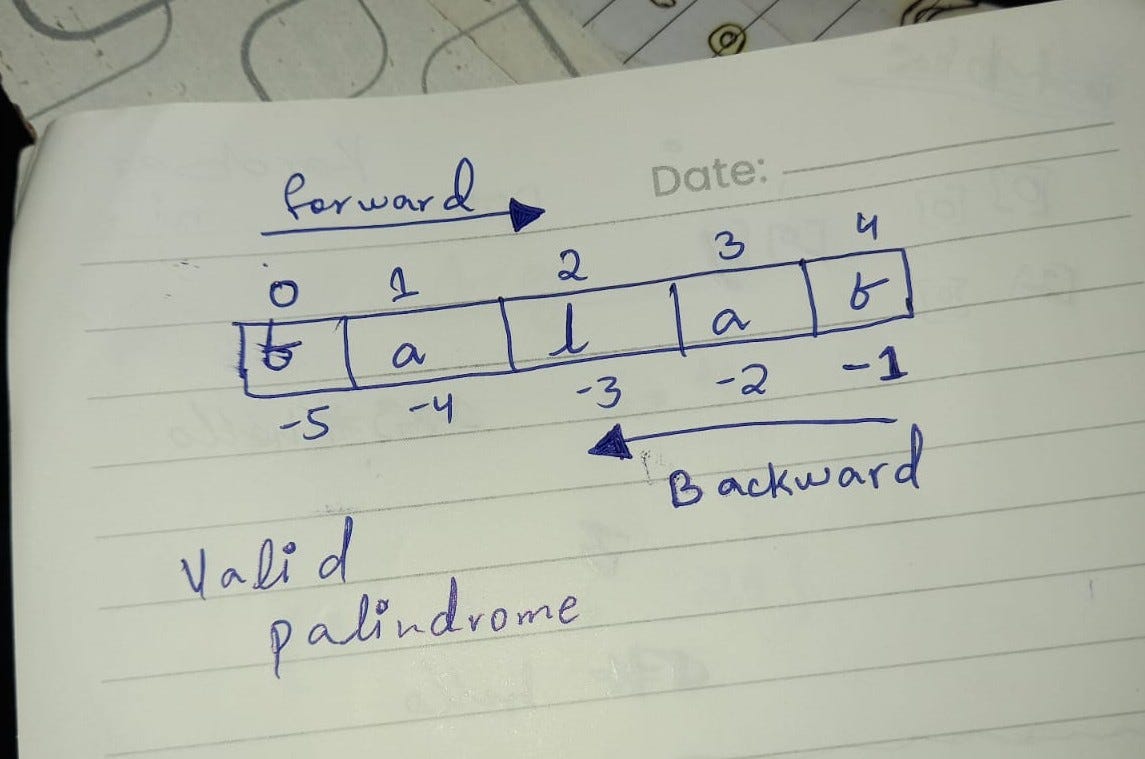 forward
Date:
0 1 2 3 4
b a l a b
-5 -4 -3 -2 -1
Backward
Valid
palindrome